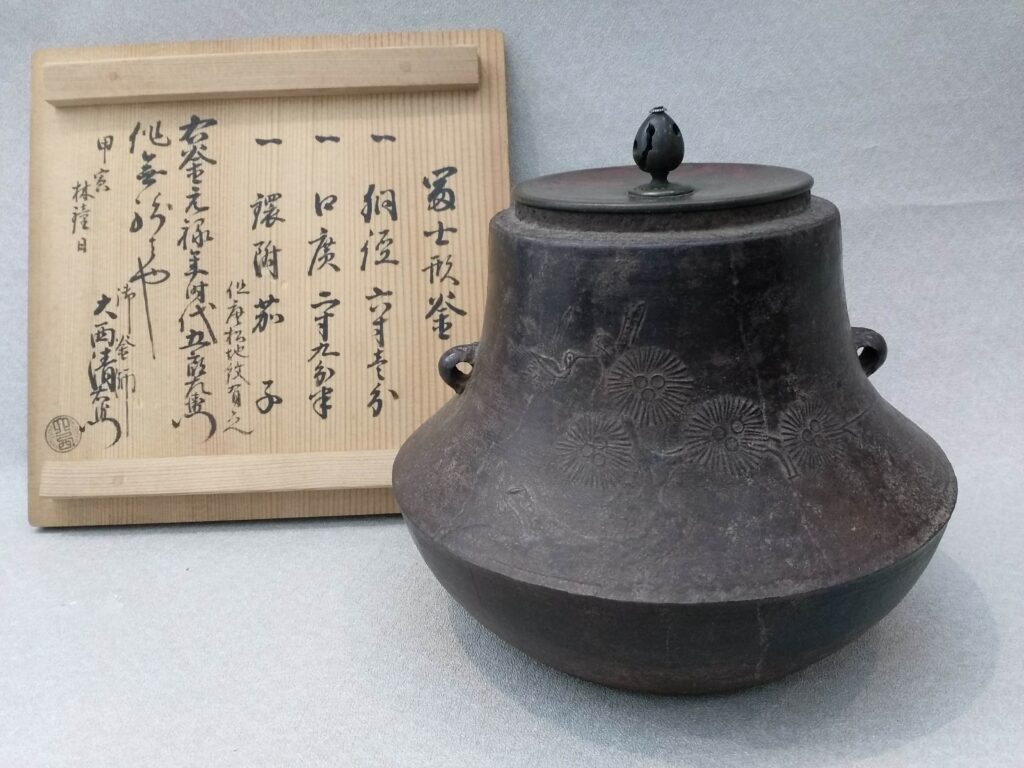 冨士形釜
一 胴径 六寸壱分
一 口廣 二寸九分半
一 鐶附 茄子
但唐松地紋有之
右釜元禄年時代五郎左衛門
作無紛者也
甲寅 林鐘日
御釜師
大西清右衛門